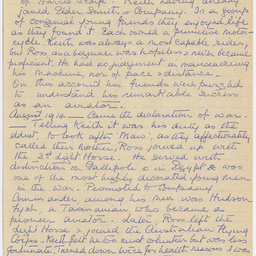 of Horse & Camp. Keith having already
joined Elder Smith & Company. In a group
of congenial young friends they enjoyed life
as they found it. Each owned a primitive motor-
cycle. Keith was always a most capable rider,
but Ross as a beginner was a hopeless & never became
proficient. He had no judgement in manoeuvering
his machine, nor of pace & distance.
On this account his friends were puzzled
to understand his remarkable success
as an aviator.
August 1914 — Came the declaration of war.
Telling Keith it was his duty as the
eldest, to look after 'Mam', as they affectionately
called their mother, Ross joined up with
the 3rd Light Horse. He served with
distinction on Gallipoli & in Egypt & was
one of the most highly decorated young men
in the War. Promoted to Company
Commander, among his men was Hudson
Fysh, a Tasmanian who became a
pioneer aviator. Later Ross left the
Light Horse & joined the Australian Flying
Corps. Keith felt he too must volunteer but was less
fortunate. Turned down twice for health reasons & was